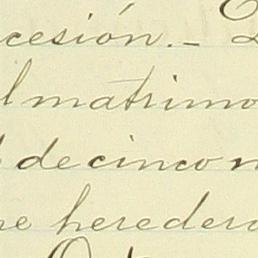 cesión.-
l matrimo
de cinco
heredero